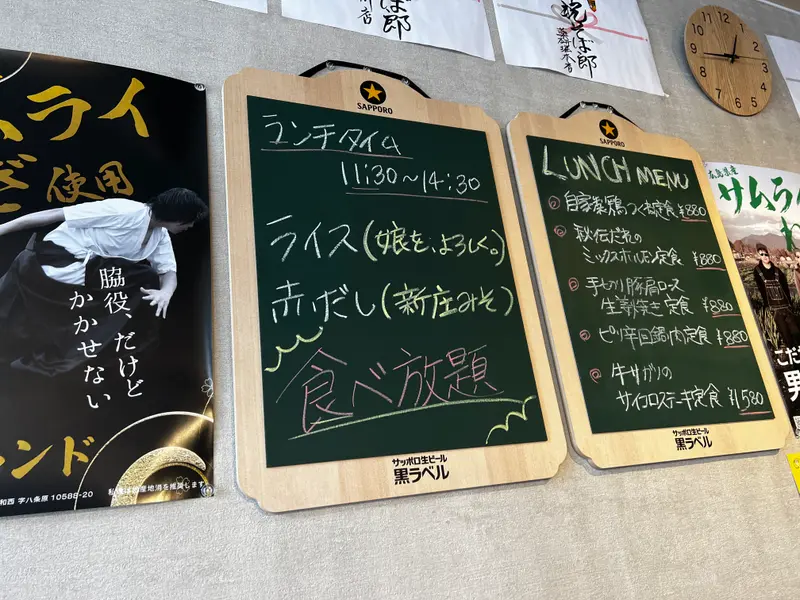 ムライ
使用
脇役、だけど
かかせない
ランド
和西 字八条原 10588-20
私達は地産地消を推奨します
そば郎
そば郎
SAPPORO
ランチタイム
11:30～14:30
ライス(娘を、よろしく。)
赤だし(新庄みそ)
食べ放題
サッポロ生ビール
黒ラベル
SAPPORO
LUNCH MENU
自家製鶏つくね定食 ¥880
秘伝だれの
ミックスホルモン定食 ¥880
手切り豚肩ロース
生姜焼き定食 ¥880
ピリ辛回鍋肉定食 ¥880
牛サガリの
サイコロステーキ定食 ¥1,580
サッポロ生ビール
黒ラベル
12
1
2
3
4
5
6
7
8
9
10
11
広島県産
サムラ
こだ
男